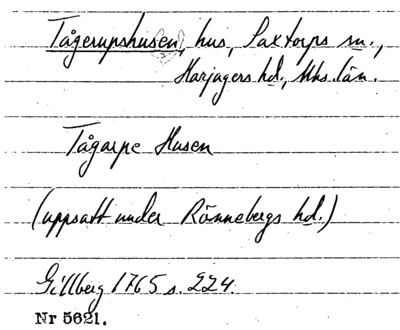 Tågerupshusen, hus, Saxtorps sn.,
Harjagers hd., Mhs. län.
Tågarpe Husen
(uppsatt under Rönnebergs hd.)
Gillberg 1765 s. 224.
Nr 5621.